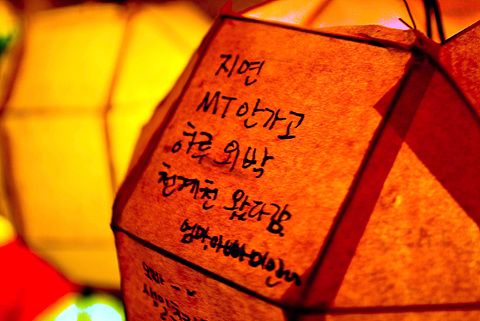 지연
MT안가고
하루 외박
천계천 왔다감
엄마아빠미안